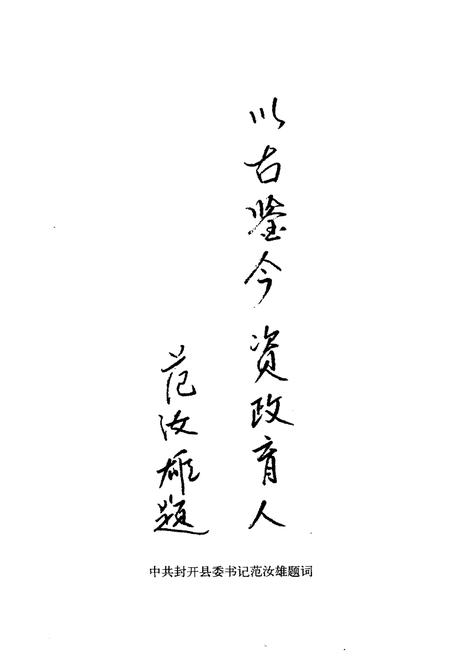 以古鉴今 资政育人
范汝雄题
中共封开县委书记范汝雄题词